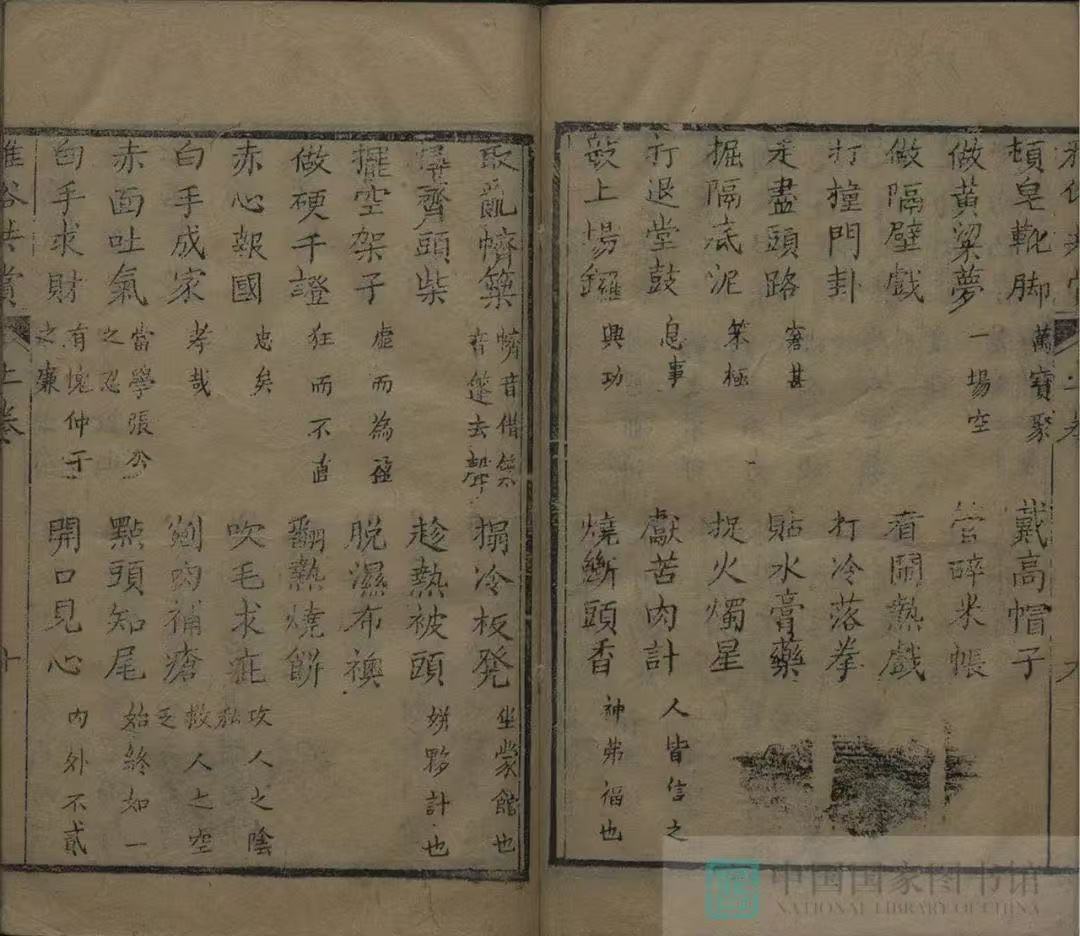 頓皂靴脚 萬寶聚 戴高帽子
做黄粱夢 一場空 管碎米帳
做隔壁戲 看鬧熱戲
打撞門卦 打冷落拳
走盡頭路 窘甚 貼水膏藥
掘隔底泥 笨極 捉火燭星
打退堂鼓 息事 獻苦肉計 人皆信之
敲上場鑼 興功 燒斷頭香 神弗福也
冷板凳 坐蒙館也
齊頭柴 趁熱被頭 姘夥計也
擺空架子 虛而為盈 脱濕布襖
做硬千證 狂而不直 翻熱燒餅
赤心報國 忠矣 吹毛求疵 攻人之陰私
白手成家 孝哉 剜肉補瘡 救人之空乏
赤面吐氣 當學張公之忍 點頭知尾 始終如一
白手求財 有愧仲子之廉 開口見心 内外不貳
雅俗共賞 上卷 十
中国国家图书馆
NATIONAL LIBRARY OF CHINA